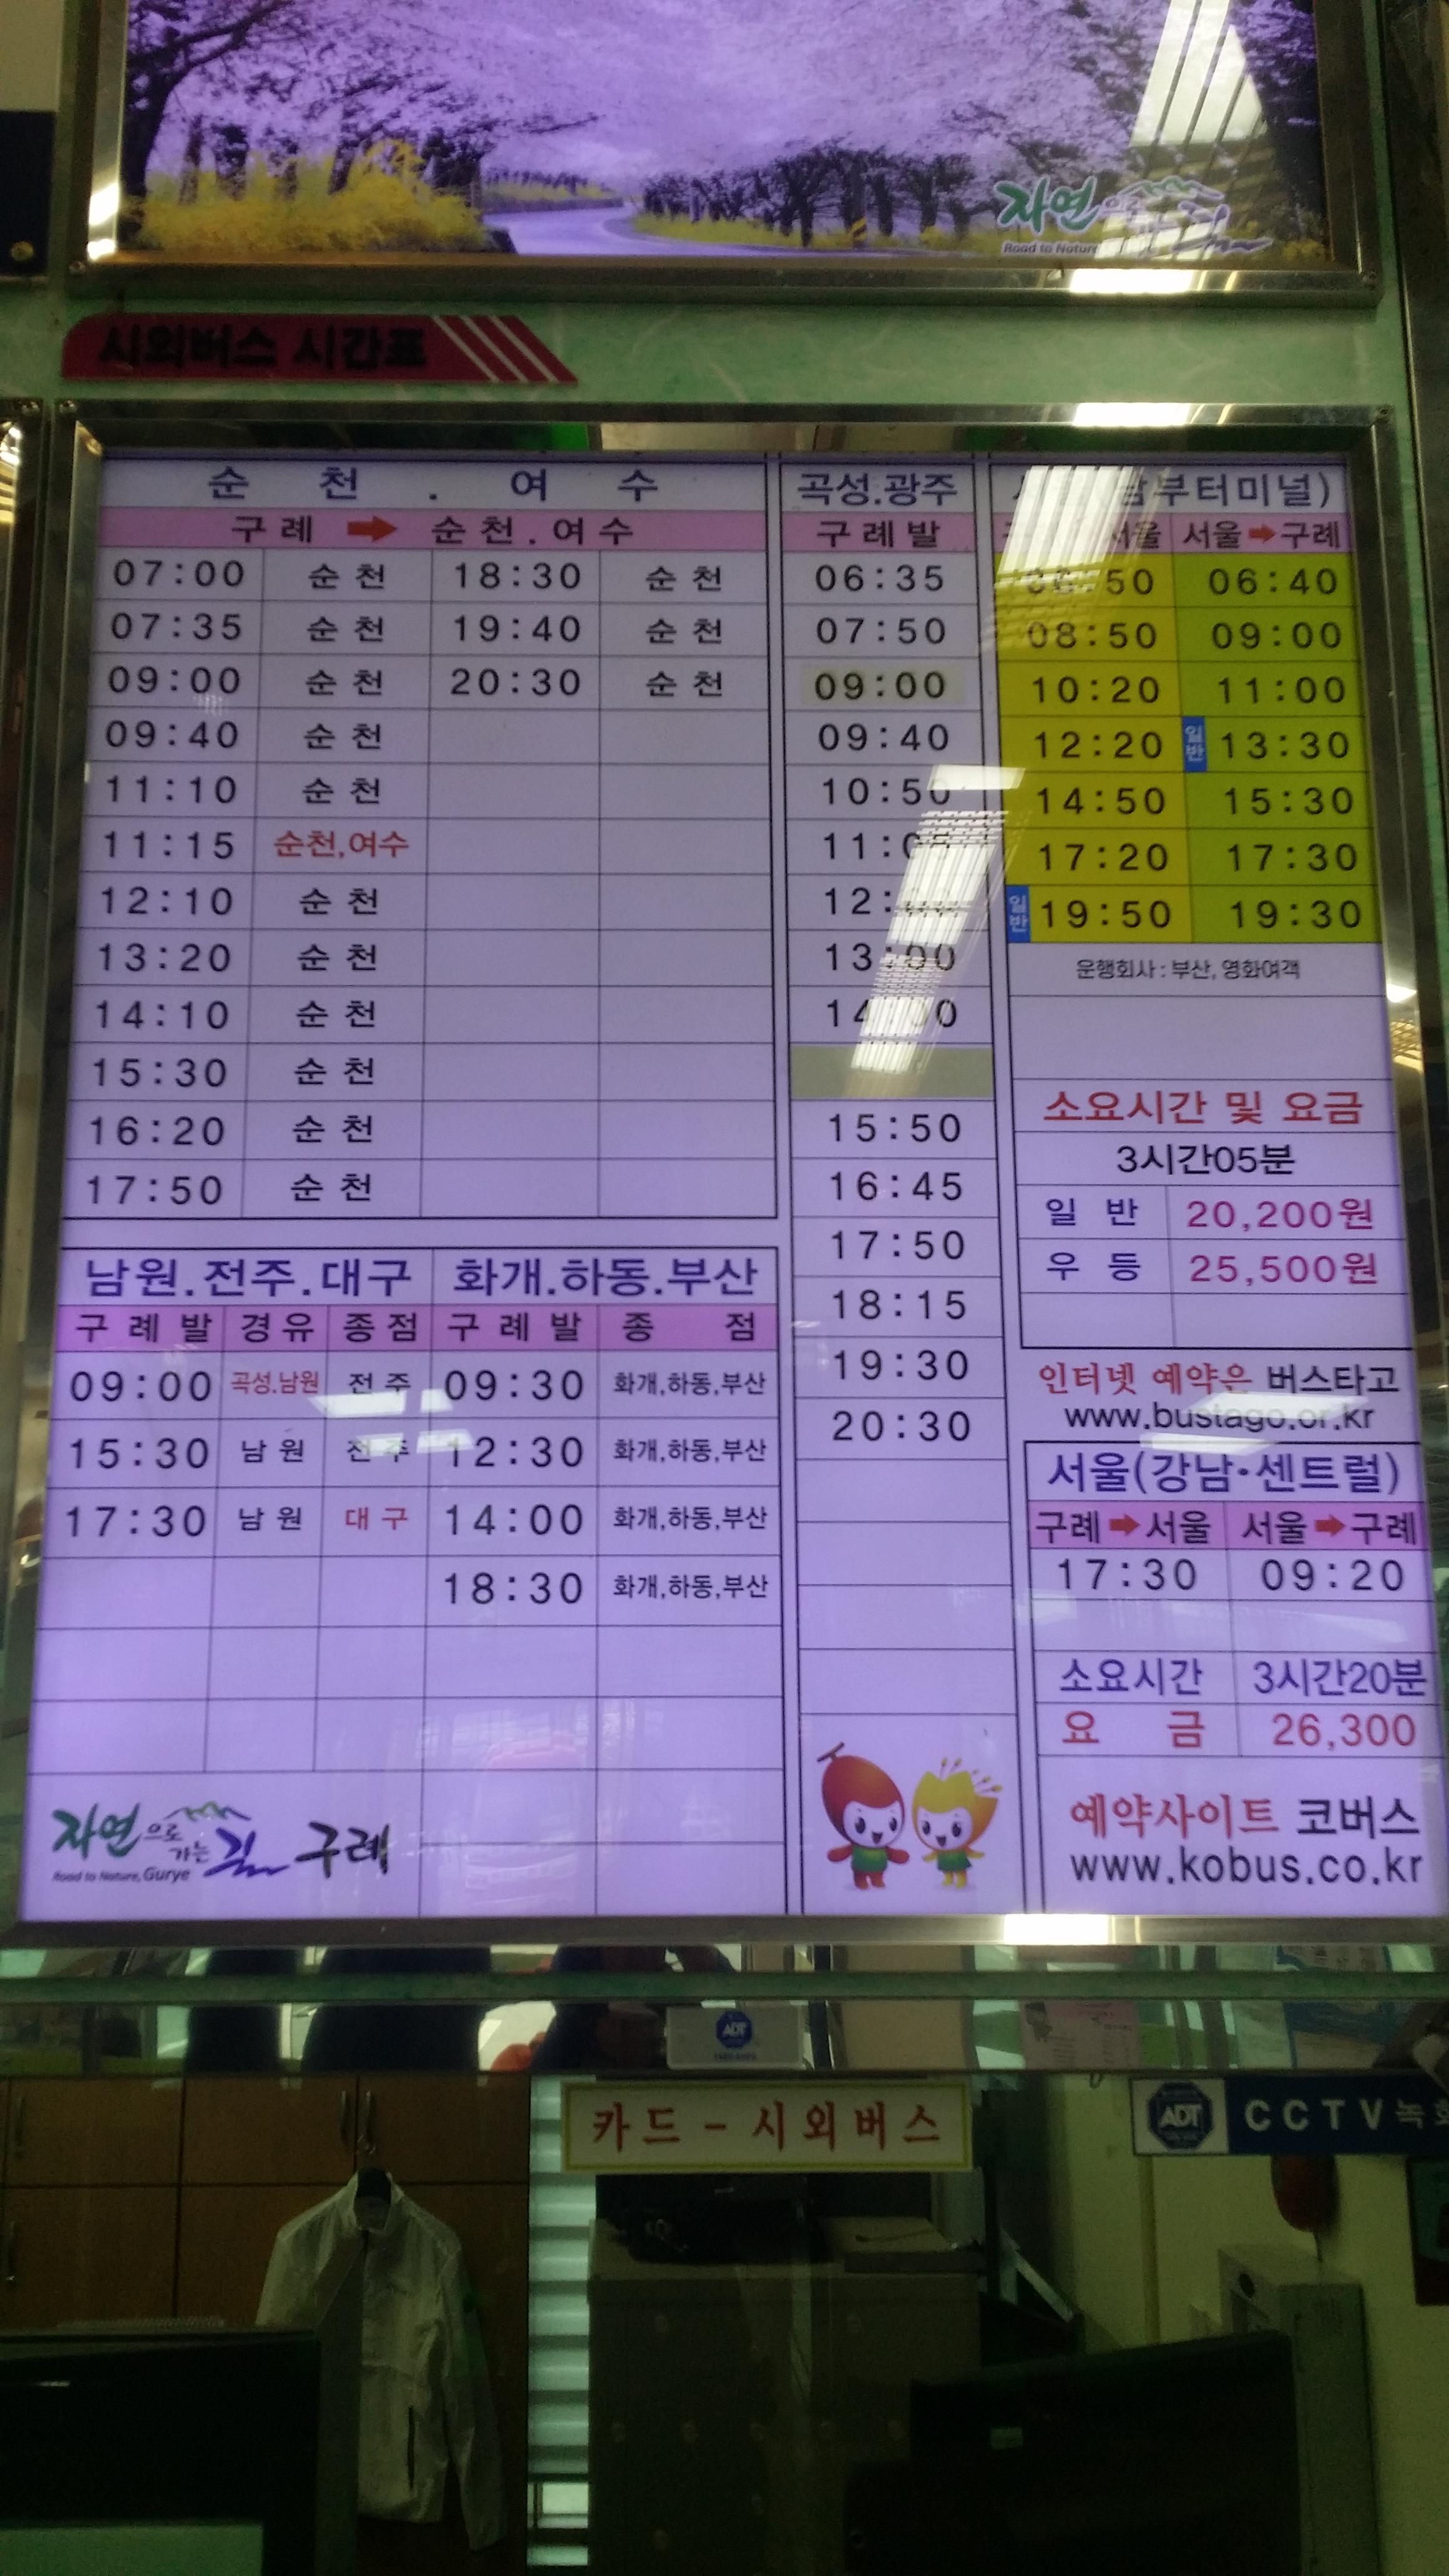 자연으로
Road to Nature
시외버스 시간표
순 천 . 여 수
구 례 ➡ 순 천 . 여 수
07:00 순 천 18:30 순 천
07:35 순 천 19:40 순 천
09:00 순 천 20:30 순 천
09:40 순 천
11:10 순 천
11:15 순천,여수
12:10 순 천
13:20 순 천
14:10 순 천
15:30 순 천
16:20 순 천
17:50 순 천
남원.전주.대구 화개.하동.부산
구 례 발 경 유 종 점 구 례 발 종 점
09:00 곡성.남원 전 주 09:30 화개,하동,부산
15:30 남 원 전 주 12:30 화개,하동,부산
17:30 남 원 대 구 14:00 화개,하동,부산
18:30 화개,하동,부산
자연으로 가는 길 구례
Road to Nature, Gurye
곡성.광주
구 례 발
06:35
07:50
09:00
09:40
10:50
13:00
15:50
16:45
17:50
18:15
19:30
20:30
남부터미널)
서울 서울 ➡ 구례
06:40
08:50 09:00
10:20 11:00
12:20 일반 13:30
14:50 15:30
17:20 17:30
일반 19:50 19:30
운행회사 : 부산, 영화여객
소요시간 및 요금
3시간05분
일 반 20,200원
우 등 25,500원
인터넷 예약은 버스타고
www.bustago.or.kr
서울(강남·센트럴)
구례 ➡ 서울 서울 ➡ 구례
17:30 09:20
소요시간 3시간20분
요 금 26,300
예약사이트 코버스
www.kobus.co.kr
ADT
카드 - 시외버스
ADT CCTV